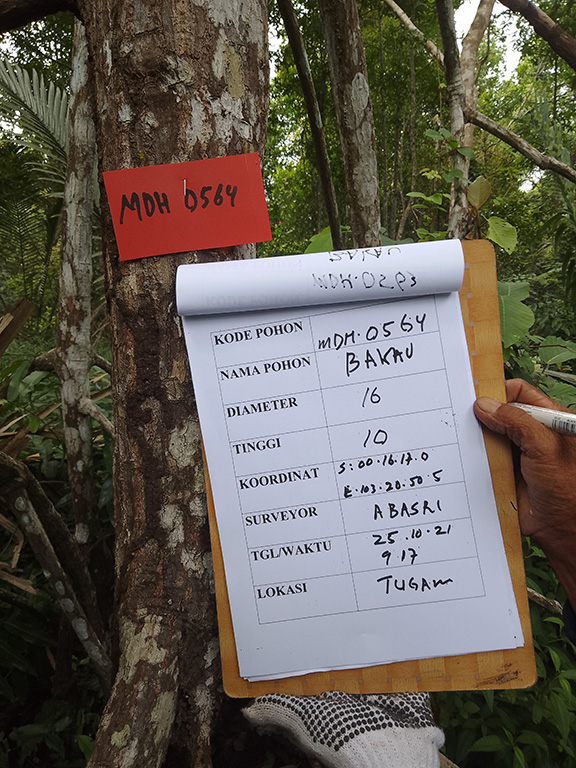 MDH 0564
KODE POHON MDH.0564
NAMA POHON BAKAU
DIAMETER 16
TINGGI 10
KOORDINAT S:00.16.17.0
E.103.20.50.5
SURVEYOR ABASRI
TGL/WAKTU 25.10.21
9.17
LOKASI TUGAM